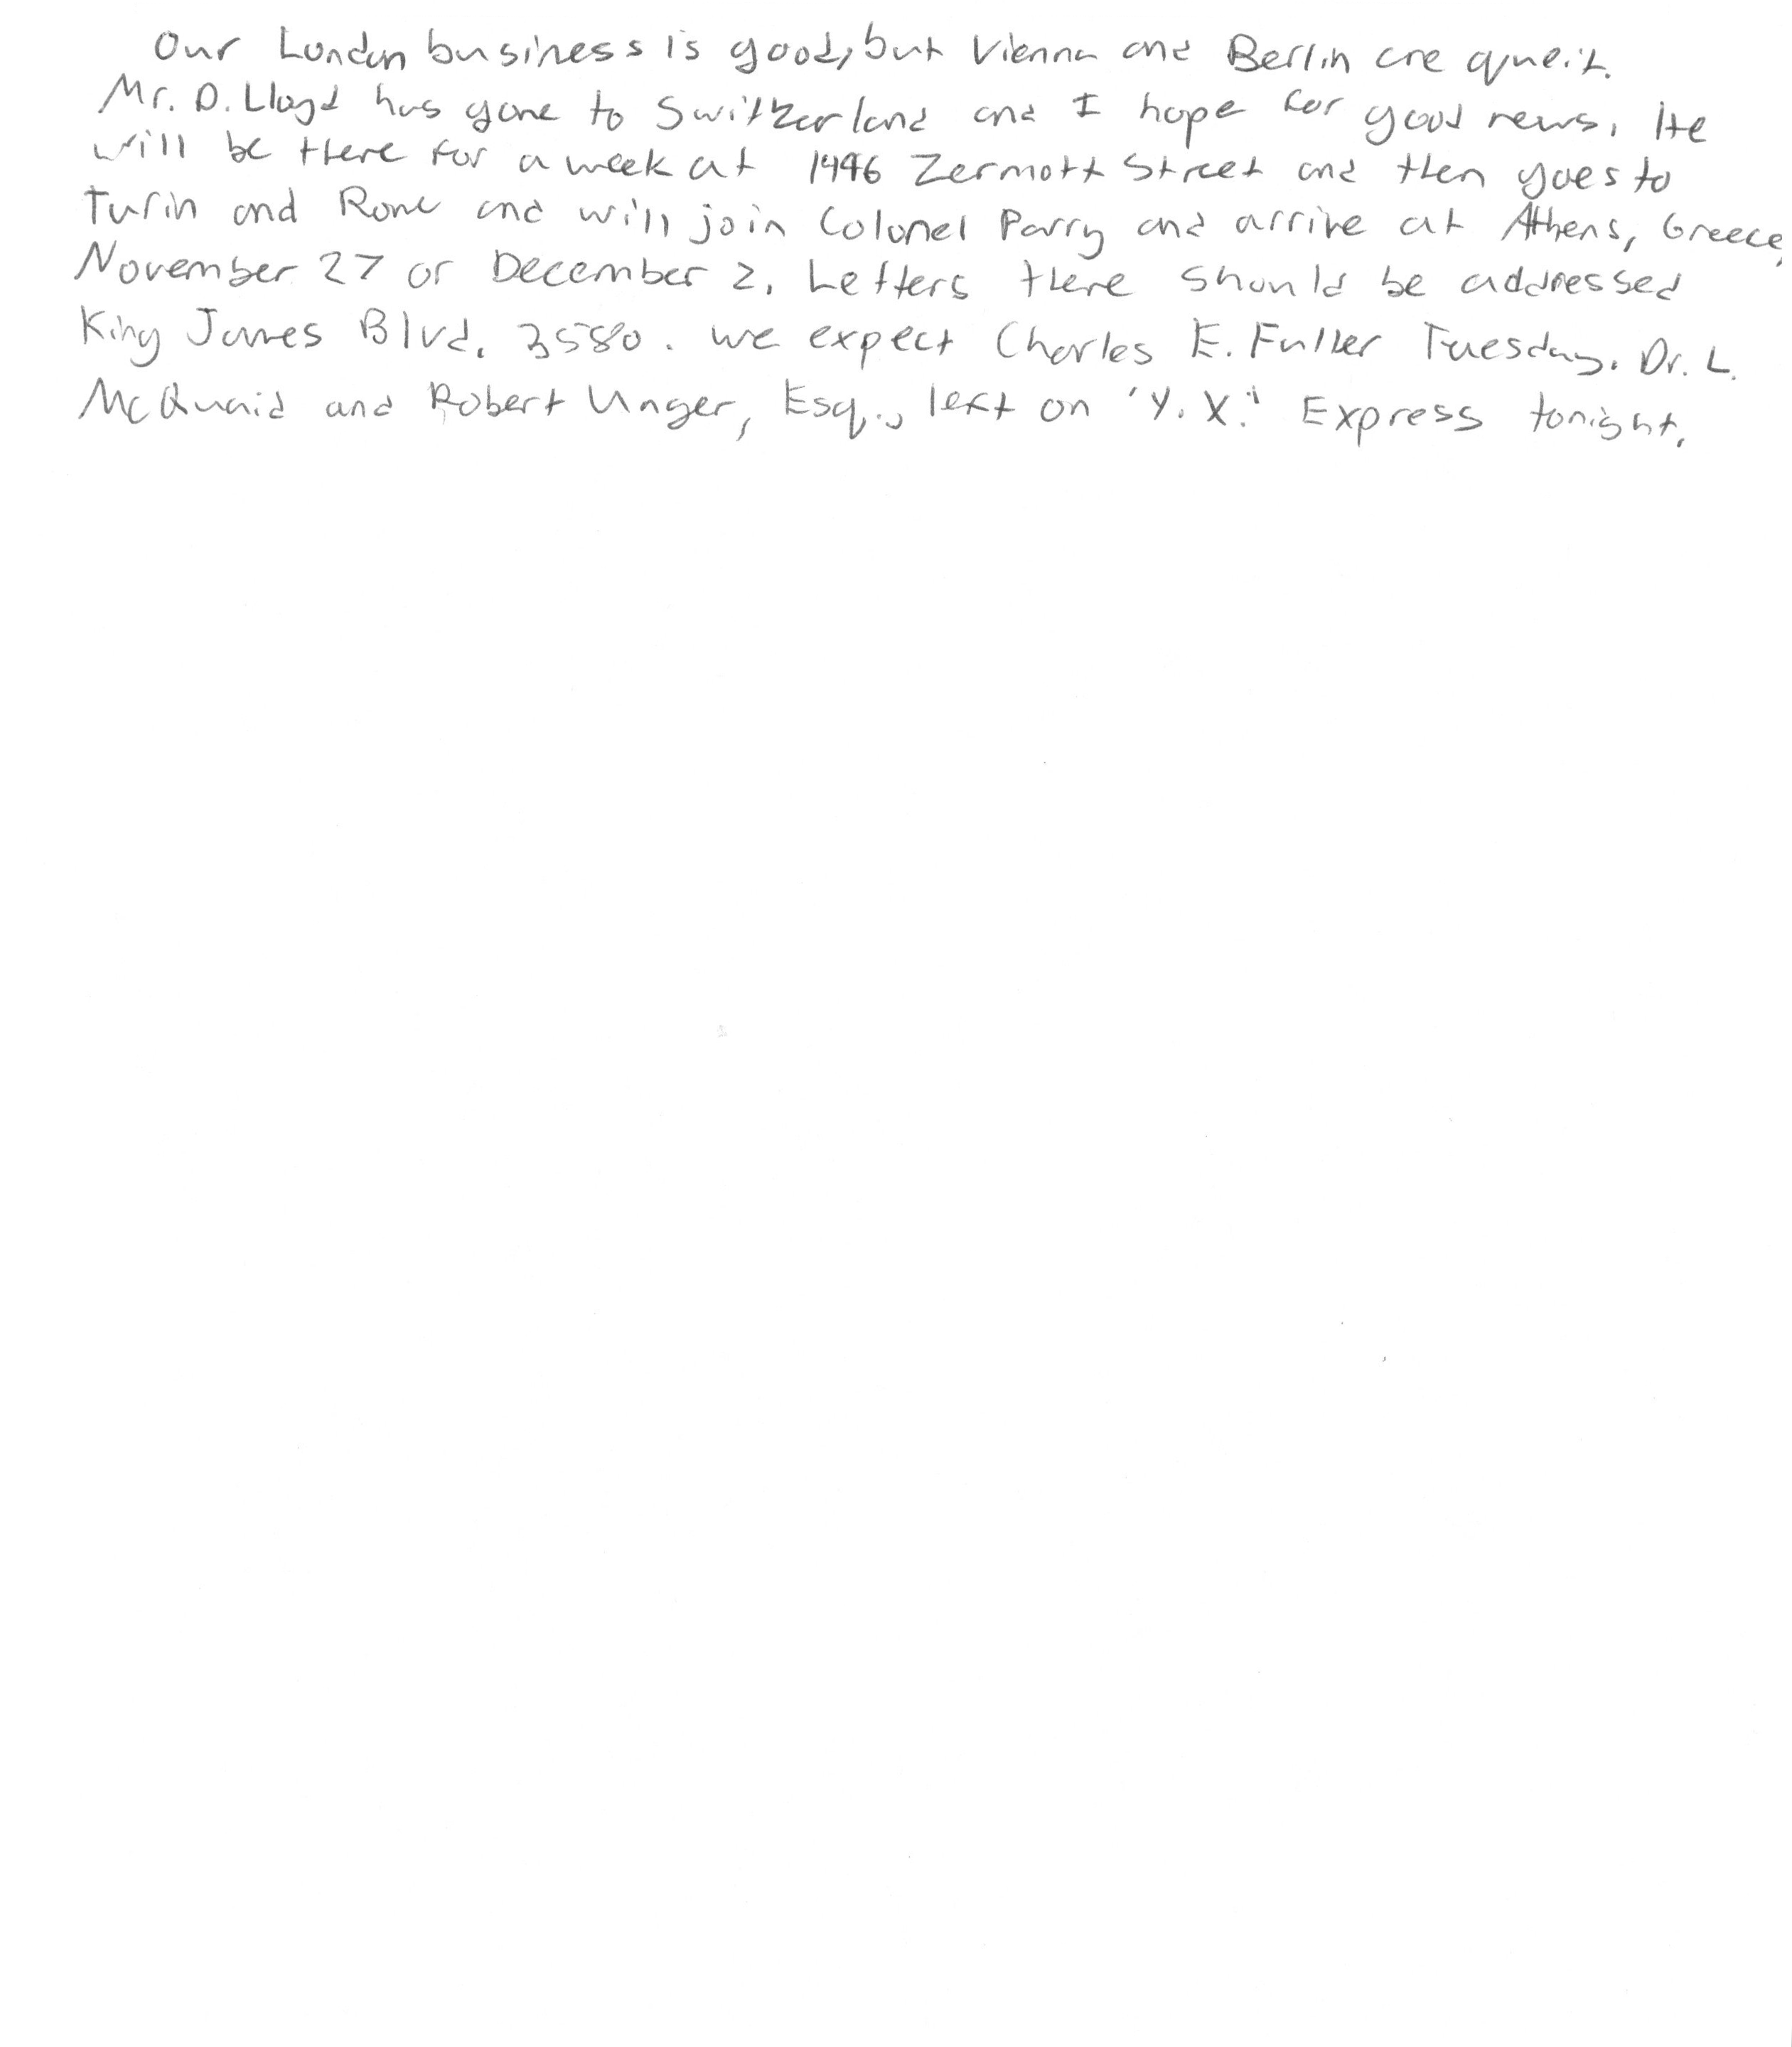 Our London business is good, but Vienna and Berlin are queit.
Mr. D. Lloyd has gone to Switzerland and I hope for good news. He
will be there for a week at 1496 Zermott Street and then goes to
Turin and Rome and will join Colonel Parry and arrive at Athens, Greece,
November 27 or December 2. Letters there should be addressed
King James Blvd. 3580. We expect Charles E. Fuller Tuesday. Dr. L.
McQuaid and Robert Unger, Esq., left on 'Y.X.' Express tonight.